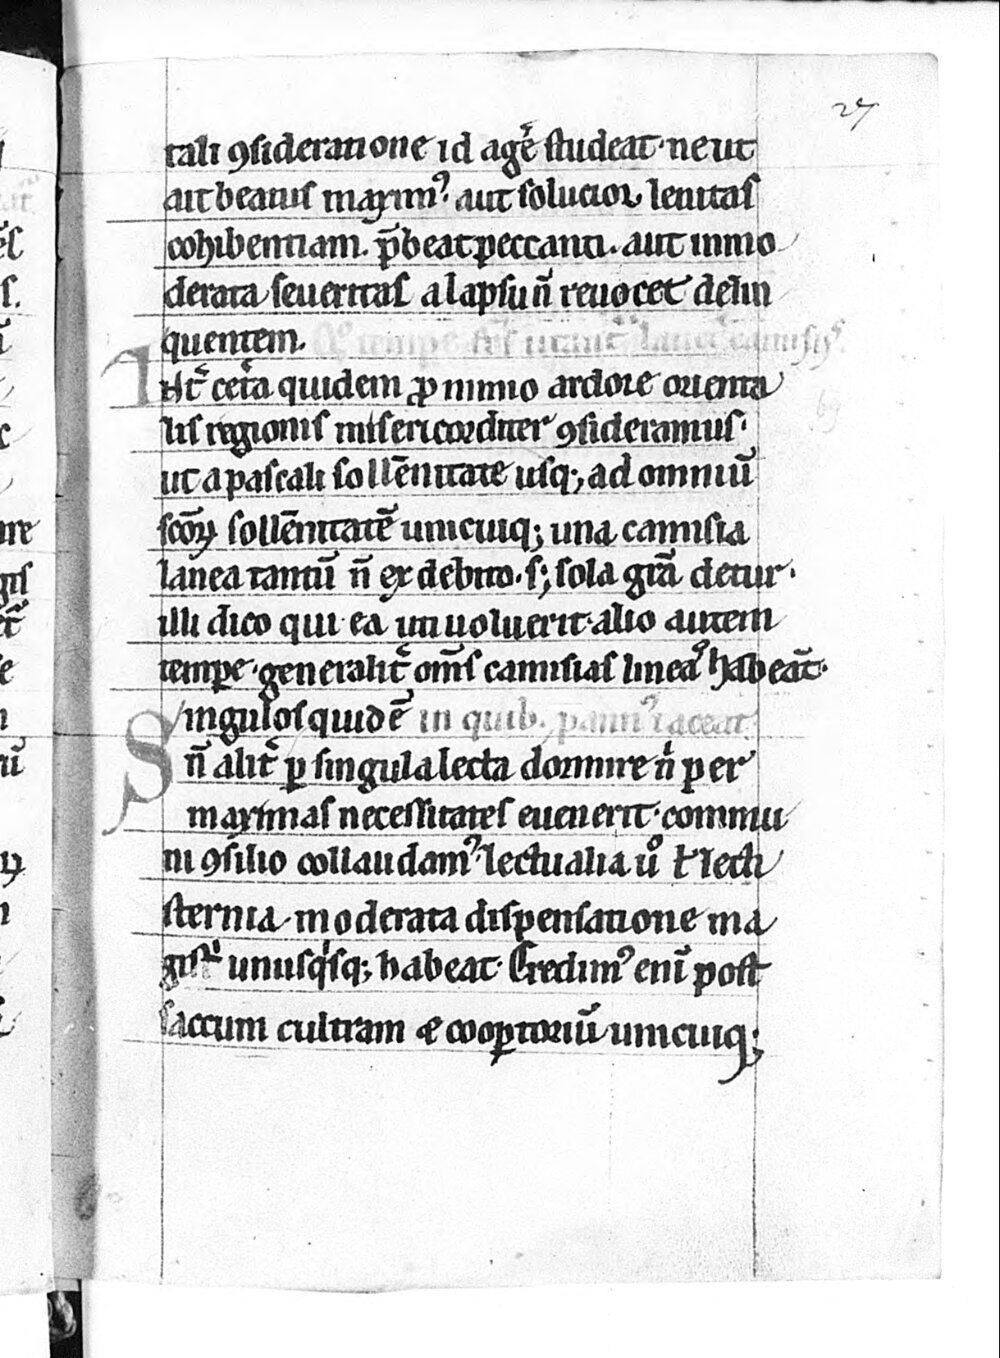 27
tali ꝯsideratione id agẽ studeat· ne ut
ait beatus maximꝰ· aut solucior lenitas
cohibentiam. p̃beat peccanti. aut inmo
derata seueritas a lapsu ñ reuocet delin
quentem. Qͦ tempe frẽs utant̃ laneis camisiis.
Int̃ cet̃a quidem ꝓ nimio ardore orienta
lis regionis misericorditer ꝯsideramus·
ut a pascali sollẽnitate usq; ad omniũ
scõꝝ sollẽnitatẽ unicuiq; una camisia
lanea tantũ ñ ex debito· s; sola grã detur·
illi dico qui ea uti uoluerit· alio autem
tempe· generalit̃ om̃s camisias lineas habeãt·
Singulos quidẽ in quib. pannꝰ iaceat.
ñ alit̃ ꝑ singula lecta dormire ñ per
maximas necessitates euenerit· commu
ni ꝯsilio collaudamꝰ· lectualia uͦ ł lecti
sternia moderata dispensatione ma
gistri unusqisq; habeat· Credimꝰ enĩ post
saccum cultram & cooꝑtoriũ unicuiq;